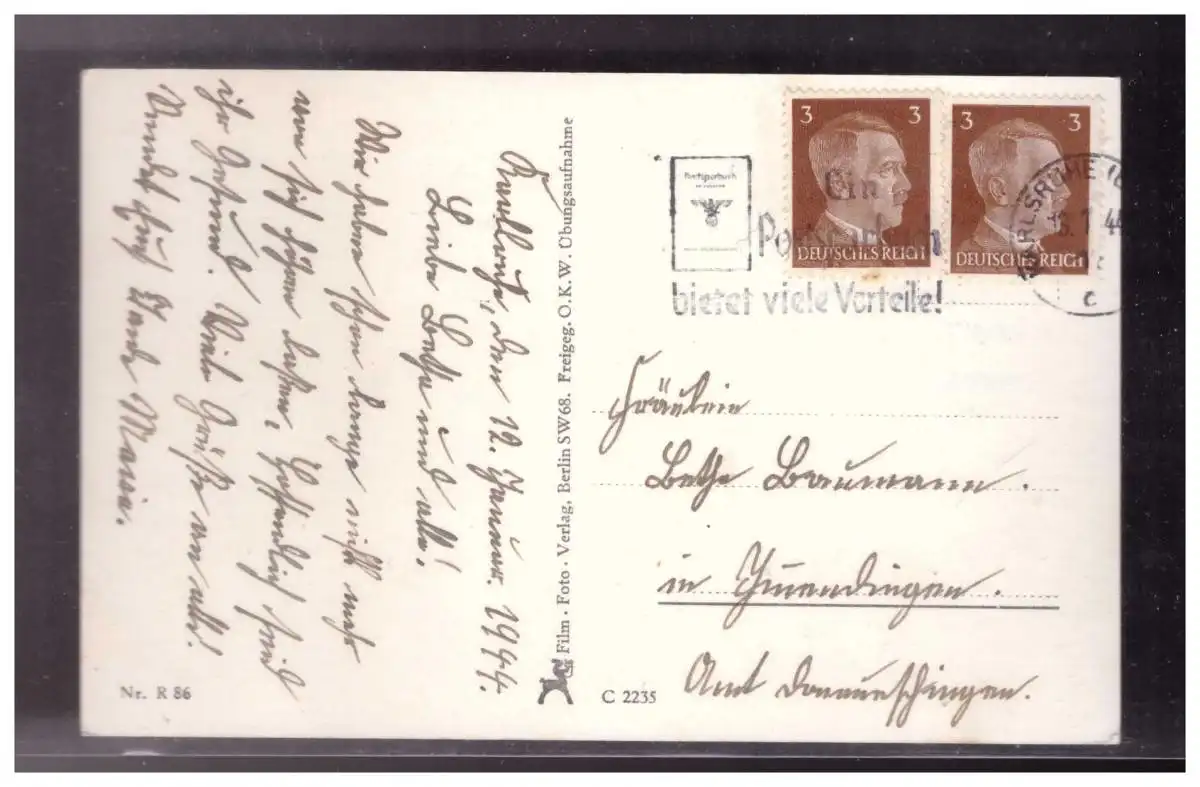 Karlsruhe, den 12. Januar. 1944.
Liebe Bethe und alle!
Wir haben schon lange nicht mehr
von sich hören lassen. Hoffendlich seid
ihr Gesund. Viele Grüße an alle!
Sendet Maria.
Nr. R 86
Film · Foto · Verlag, Berlin SW68. Freigeg. O.K.W. Übungsaufnahme
C 2235
Postsparbuch
Ein
bietet viele Vorteile!
3 3
DEUTSCHES REICH
3 3
DEUTSCHES REICH
KARLSRUHE
44
c
Fräulein
Bethe Baumann.
in
Amt Donaueschingen.